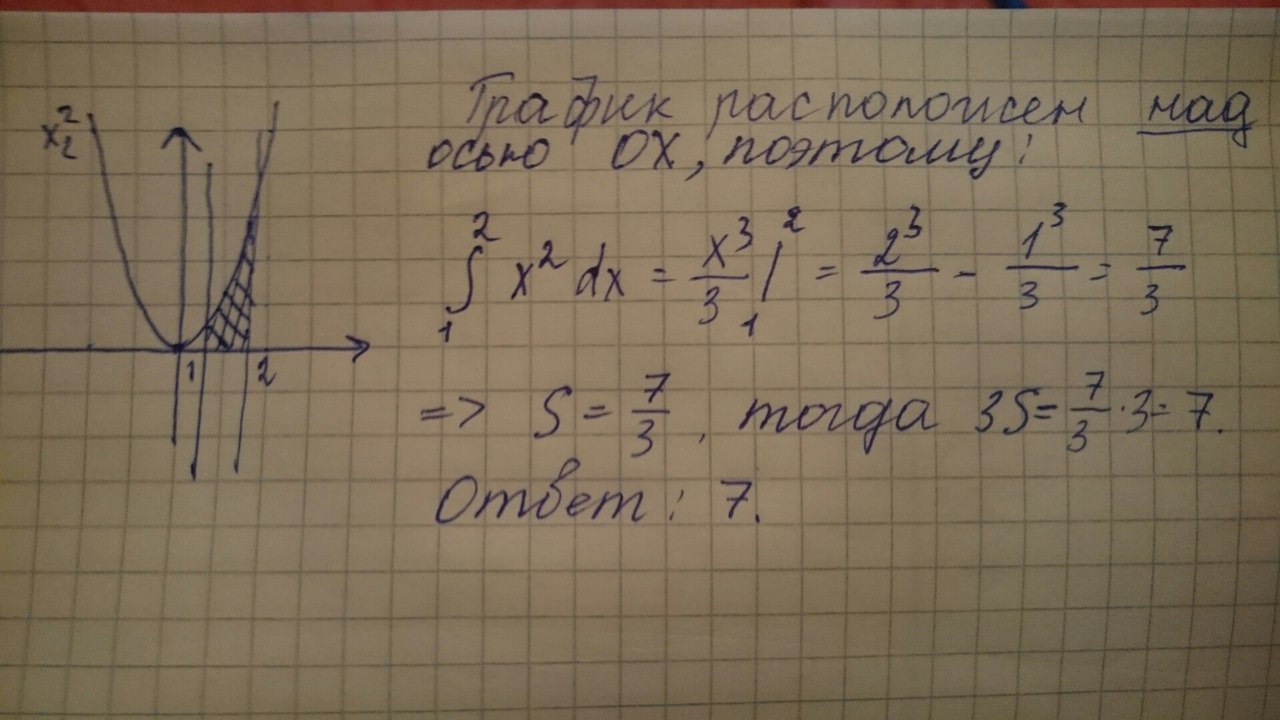 График расположен над
осью OX, поэтому:
∫₁² x² dx = x³/3 |₁² = 2³/3 - 1³/3 = 7/3
=> S = 7/3, тогда 3S = 7/3 · 3 = 7.
Ответ: 7.
x²
1 2